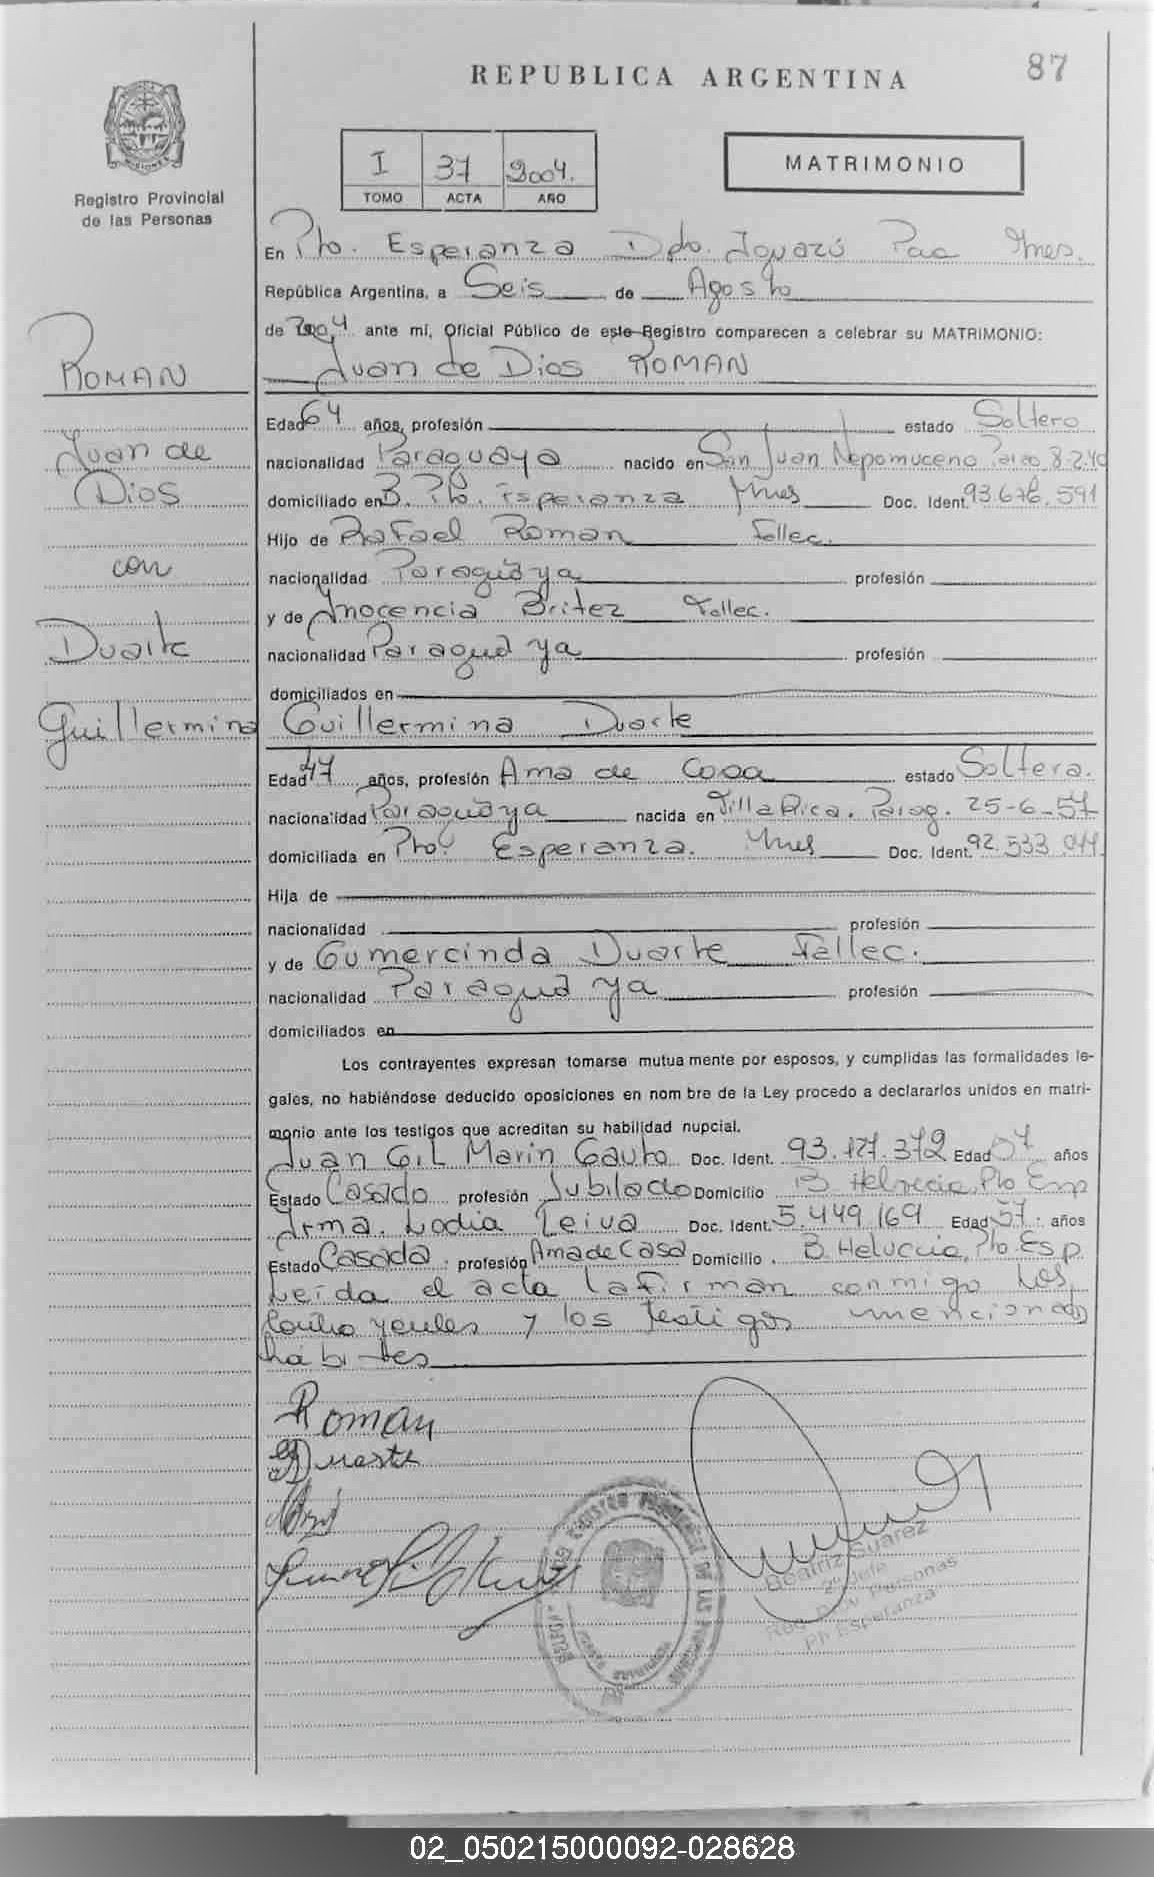 REPUBLICA ARGENTINA
87
I 37 2004.
TOMO ACTA AÑO
MATRIMONIO
Registro Provincial
de las Personas
ROMAN
Juan de
Dios
con
Duarte
Guillermina
En Pto. Esperanza Dpto. Iguazú
República Argentina, a Seis de Agosto
de 2004 ante mí, Oficial Público de este Registro comparecen a celebrar su MATRIMONIO:
Juan de Dios ROMAN
Edad 64 años, profesión estado Soltero
nacionalidad Paraguaya nacido en San Juan Nepomuceno 8-2-40
domiciliado en B. Pto. Esperanza Mnes Doc. Ident. 93.676.591
Hijo de Rafael Roman Fallec.
nacionalidad Paraguaya profesión
y de Inocencia Britez Fallec.
nacionalidad Paraguaya profesión
domiciliados en
Guillermina Duarte
Edad 47 años, profesión Ama de Casa estado Soltera.
nacionalidad Paraguaya nacida en Villa Rica. Parag. 25-6-57
domiciliada en Pto. Esperanza. Mnes Doc. Ident. 92.533.044
Hija de
nacionalidad profesión
y de Gumercinda Duarte Fallec.
nacionalidad Paraguaya profesión
domiciliados en
Los contrayentes expresan tomarse mutuamente por esposos, y cumplidas las formalidades le-
gales, no habiéndose deducido oposiciones en nom bre de la Ley procedo a declararlos unidos en matri-
monio ante los testigos que acreditan su habilidad nupcial.
Juan Gil Marin Gauto Doc. Ident. 93.127.372 Edad 57 años
Estado Casado profesión Jubilado Domicilio B. Helvecia, Pto Esp
Irma. Leiva Doc. Ident. 5.449.169 Edad 57. años
Estado Casada. profesión Ama de Casa Domicilio. B. Helvecia, Pto. Esp.
Leída el acta la firman conmigo los
contrayentes y los testigos mencionados
hábiles
Roman
Duarte
Beatriz Suarez
2º Jefe
Reg. Prov. Personas
Pto Esperanza
02_050215000092-028628